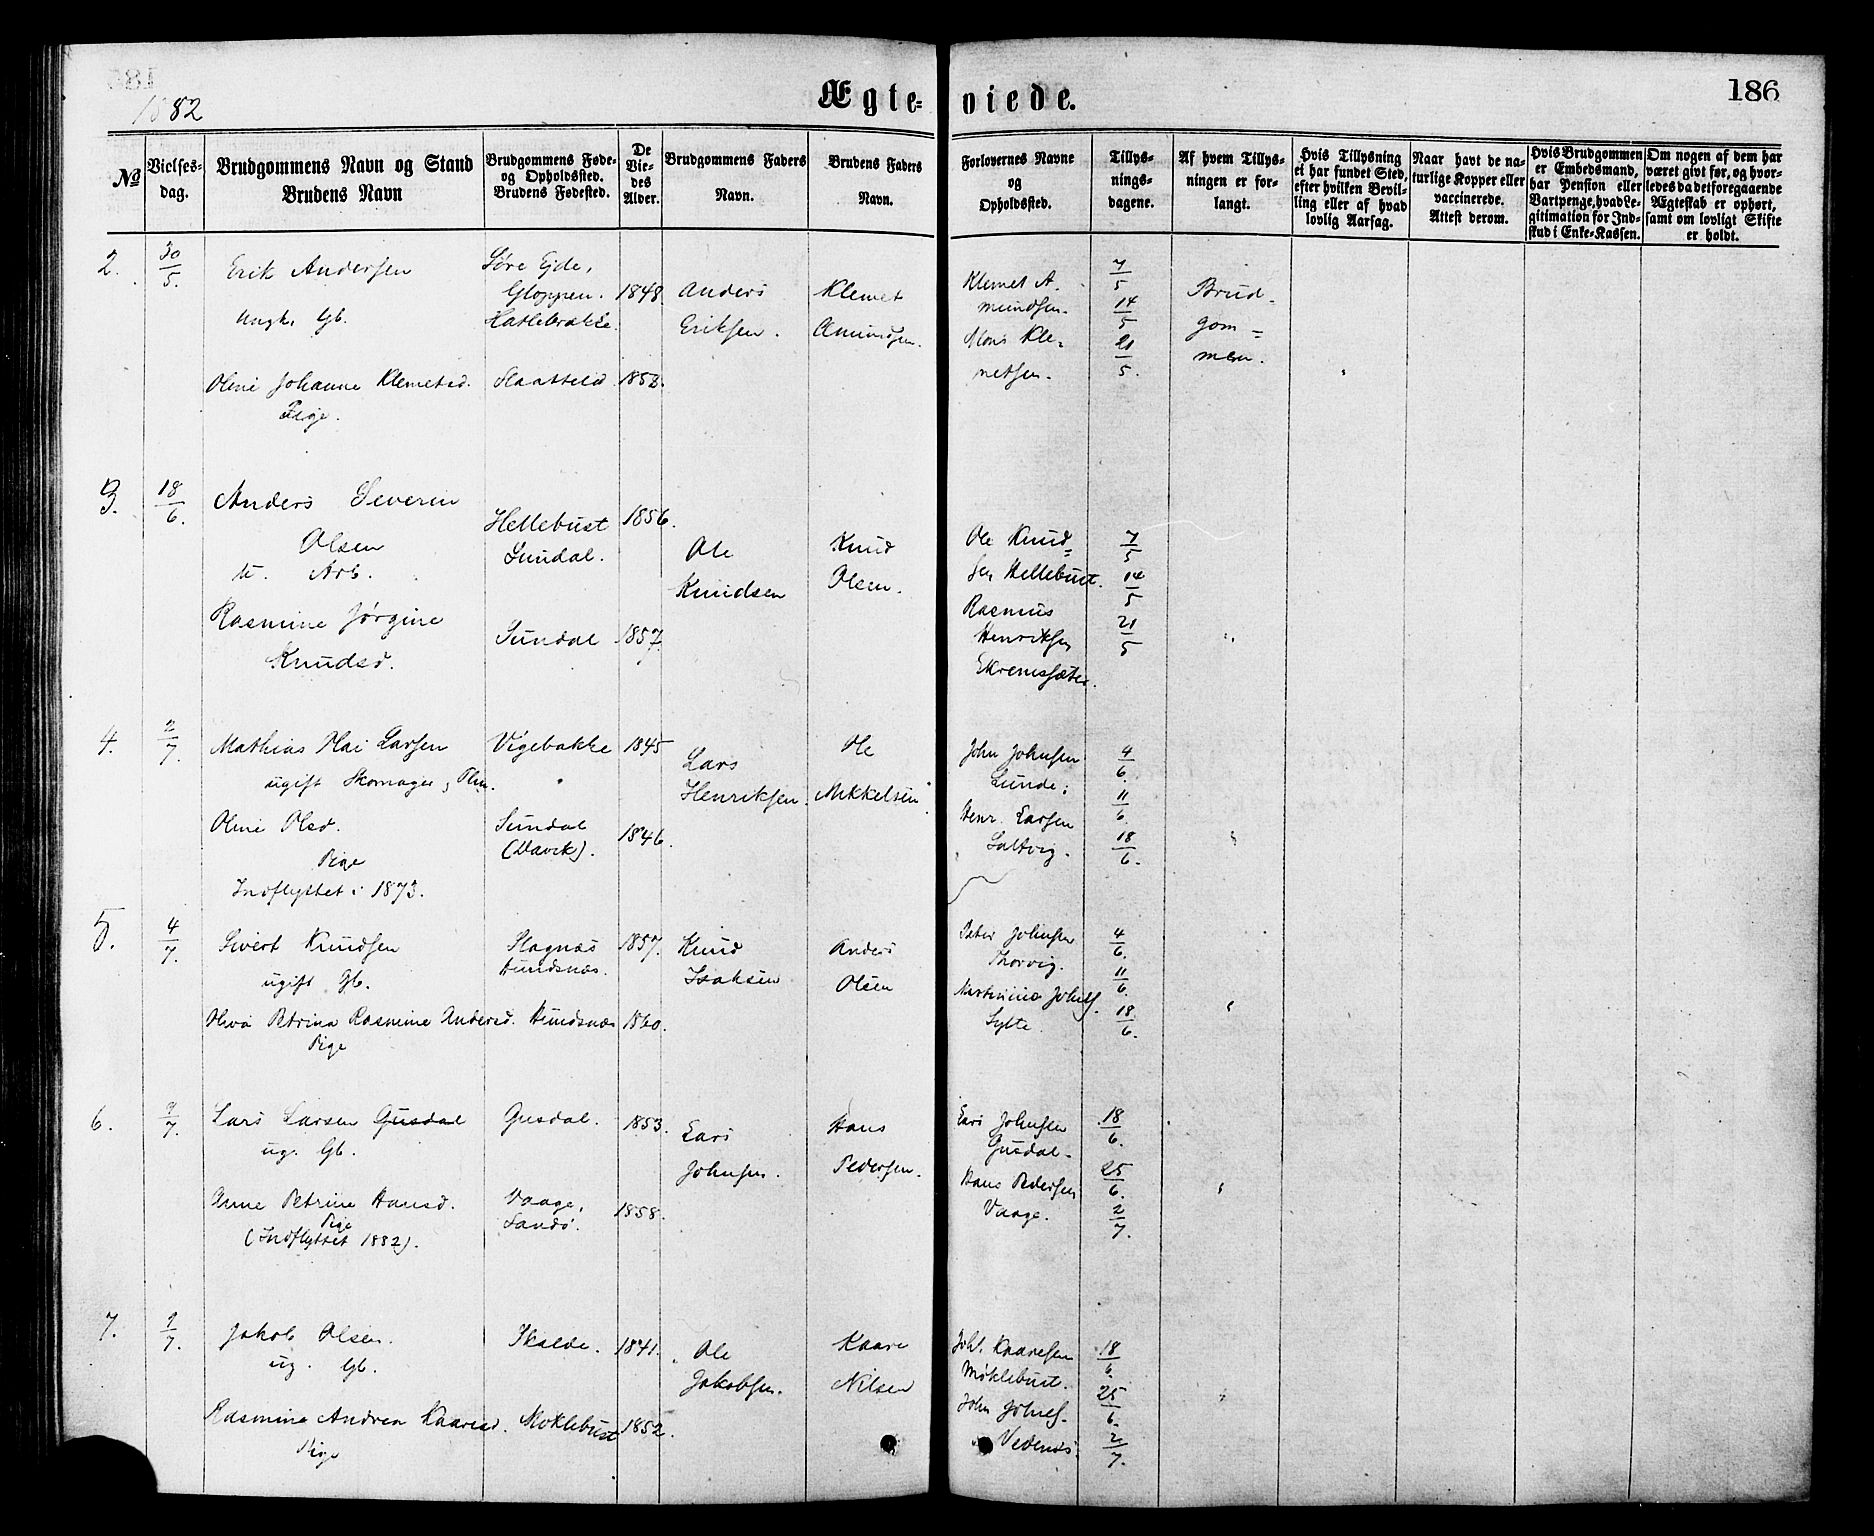 1882
Ægte-
viede.
186
No
Vielses-
dag.
Brudgommens Navn og Stand
Brudens Navn
Brudgommens Føde-
og Opholdssted.
Brudens Fødested.
De
Vie-
des
Alder.
Brudgommens Faders
Navn.
Brudens Faders
Navn.
Forlovernes Navne
og
Opholdssted.
Tillys-
nings-
dagene.
Af hvem Tillys-
ningen er for-
langt.
Hvis Tillysning
ei har fundet Sted,
efter hvilken Bevil-
ling eller af hvad
lovlig Aarsag.
Naar havt de na-
turlige Kopper eller
vaccinerede.
Attest derom.
Hvis Brudgommen
er Embedsmand,
har Pension eller
Vartpenge, hvad Le-
gitimation for Ind-
skud i Enke-Kassen.
Om nogen af dem har
været givt før, og hvor-
ledes da det foregaaende
Ægteskab er ophørt,
samt om lovligt Skifte
er holdt.
2.
30/5.
Erik Andersen
Ungk. Gb.
Gloppen.
1848
Anders
Eriksen.
Klemet
Amundsen.
Klemet A.
mundsen.
7/5
14/5
21/5.
Brud-
gom=
men.
Oline Johanne Klemetsd.
Pige.
1852.
3.
18/6.
Anders Severin
Olsen
u. Arb.
Hellebust
Sundal.
1856.
Ole
Knudsen
Knud
Olsen.
Ole Knud=
sen Hellebust.
Rasmus
Henriksen
Ekremsæter.
7/5
14/5
21/5
Rasmine Jørgine
Knudsd.
Sundal
1857.
4.
2/7.
Mathias Larsen
ugift Skomager,
Vigebakke
1845
Lars
Henriksen.
Ole
Mekkelsen
John Johnsen
Lunde;
Henr. Larsen
Saltvig.
4/6.
11/6.
18/6.
Oline Olsd.
Pige
Indflyttet i 1873.
Sundal
(Davik).
1846.
5.
4/7.
Sivert Knudsen
ugift Gb.
Slagnæs
Hundsnæs.
1857.
Knud
Isaksen
Anders
Olsen
Peter Johnsen
Thorvig.
Sylte.
4/6.
11/6.
18/6.
Petrina Rasmine Andersd.
Pige
Hundsnæs
1860.
6.
9/7.
Lars Larsen Gusdal
ug. Gb.
Gusdal.
1853.
Lars
Johnsen.
Hans
Pedersen.
Lars Johnsen
Gusdal.
Hans Pedersen
Vaage.
18/6.
25/6.
2/7.
Anne Petrine Hansd.
Pige
(Indflyttet 1882).
Vaage,
Sandø.
1858.
7.
9/7.
Jakob Olsen.
ug. Gb.
1841.
Ole
Jakobsen.
Kaare
Nilsen
Joh. Kaaresen
Møklebust.
John Johns.
Vedenæs
18/6.
25/6.
2/7.
Rasmine Andrea Kaaresd.
Pige
Møklebust
1852.